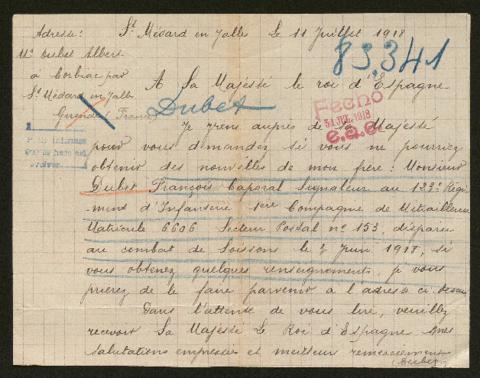 Adresse: St Médard en Jalle le 11 Juillet 1918
Mr Dubet Albert
à Corbiac par
St Médard en Jalle
Gironde (France)
83341
A Sa Majesté le roi d'Espagne
Dubet
Fecho
31 JUL. 1918
Je viens auprès de Sa Majesté
pour vous demander si vous ne pourriez
obtenir des nouvelles de mon frère: Monsieur
Dubet François Caporal Signaleur au 123e Régi
ment d'Infanterie 1ère Compagne de Mitrailleuse
Matricule 6606 Secteur Postal no 153, disparu
au combat de Soissons le 2 Juin 1918, si
vous obtenez quelques renseignements, je vous
prierez de le faire parvenir à l'adresse ci-dessus
Dans l'attente de vous lire, veuillez
recevoir Sa Majesté Le Roi d'Espagne mes
salutations empressées et meilleur remerciement
Dubet